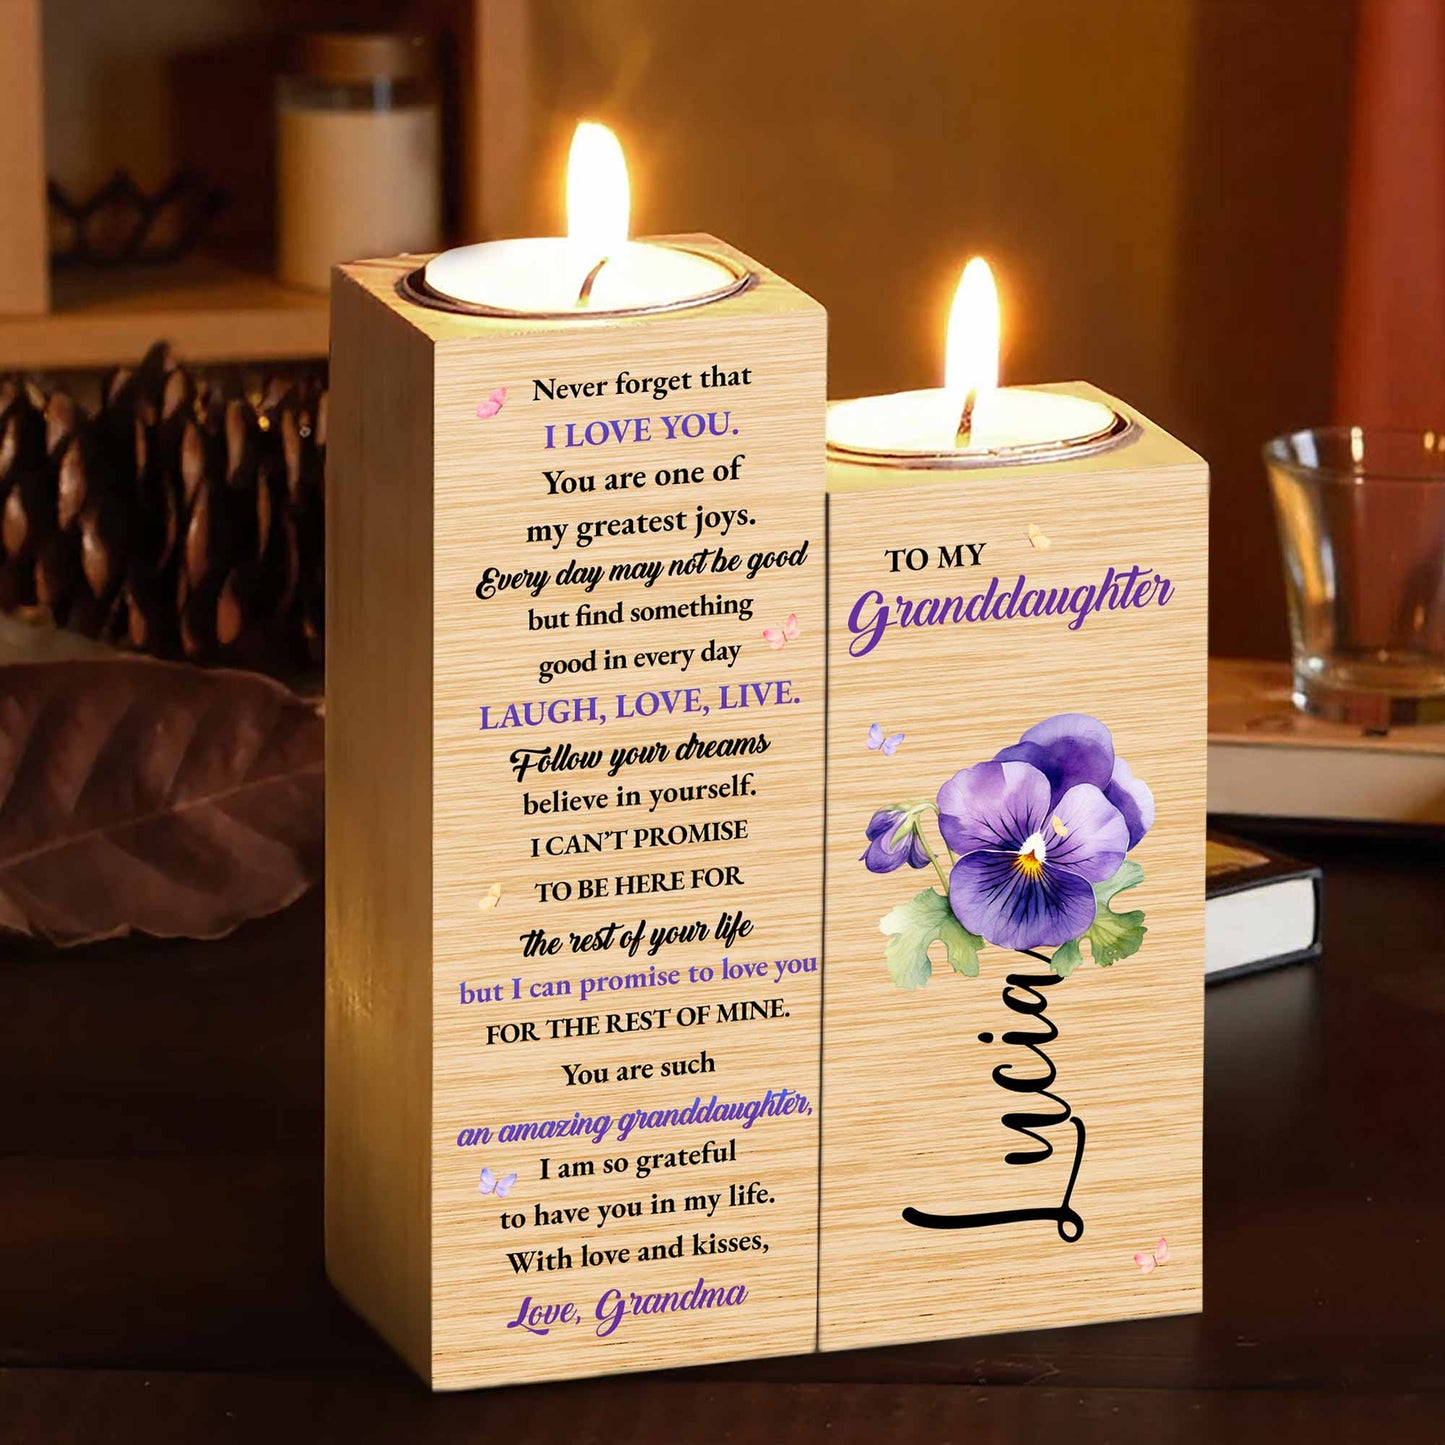 Never forget that
I LOVE YOU.
You are one of
my greatest joys.
Every day may not be good
but find something
good in every day
LAUGH, LOVE, LIVE.
Follow your dreams
believe in yourself.
I CAN'T PROMISE
TO BE HERE FOR
the rest of your life
but I can promise to love you
FOR THE REST OF MINE.
You are such
an amazing granddaughter,
I am so grateful
to have you in my life.
With love and kisses,
Love, Grandma
TO MY
Granddaughter
Lucia